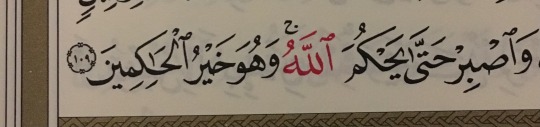 وَٱصْبِرْ حَتَّىٰ يَحْكُمَ ٱللَّهُۚ وَهُوَ خَيْرُ ٱلْحَٰكِمِينَ ١٠٩